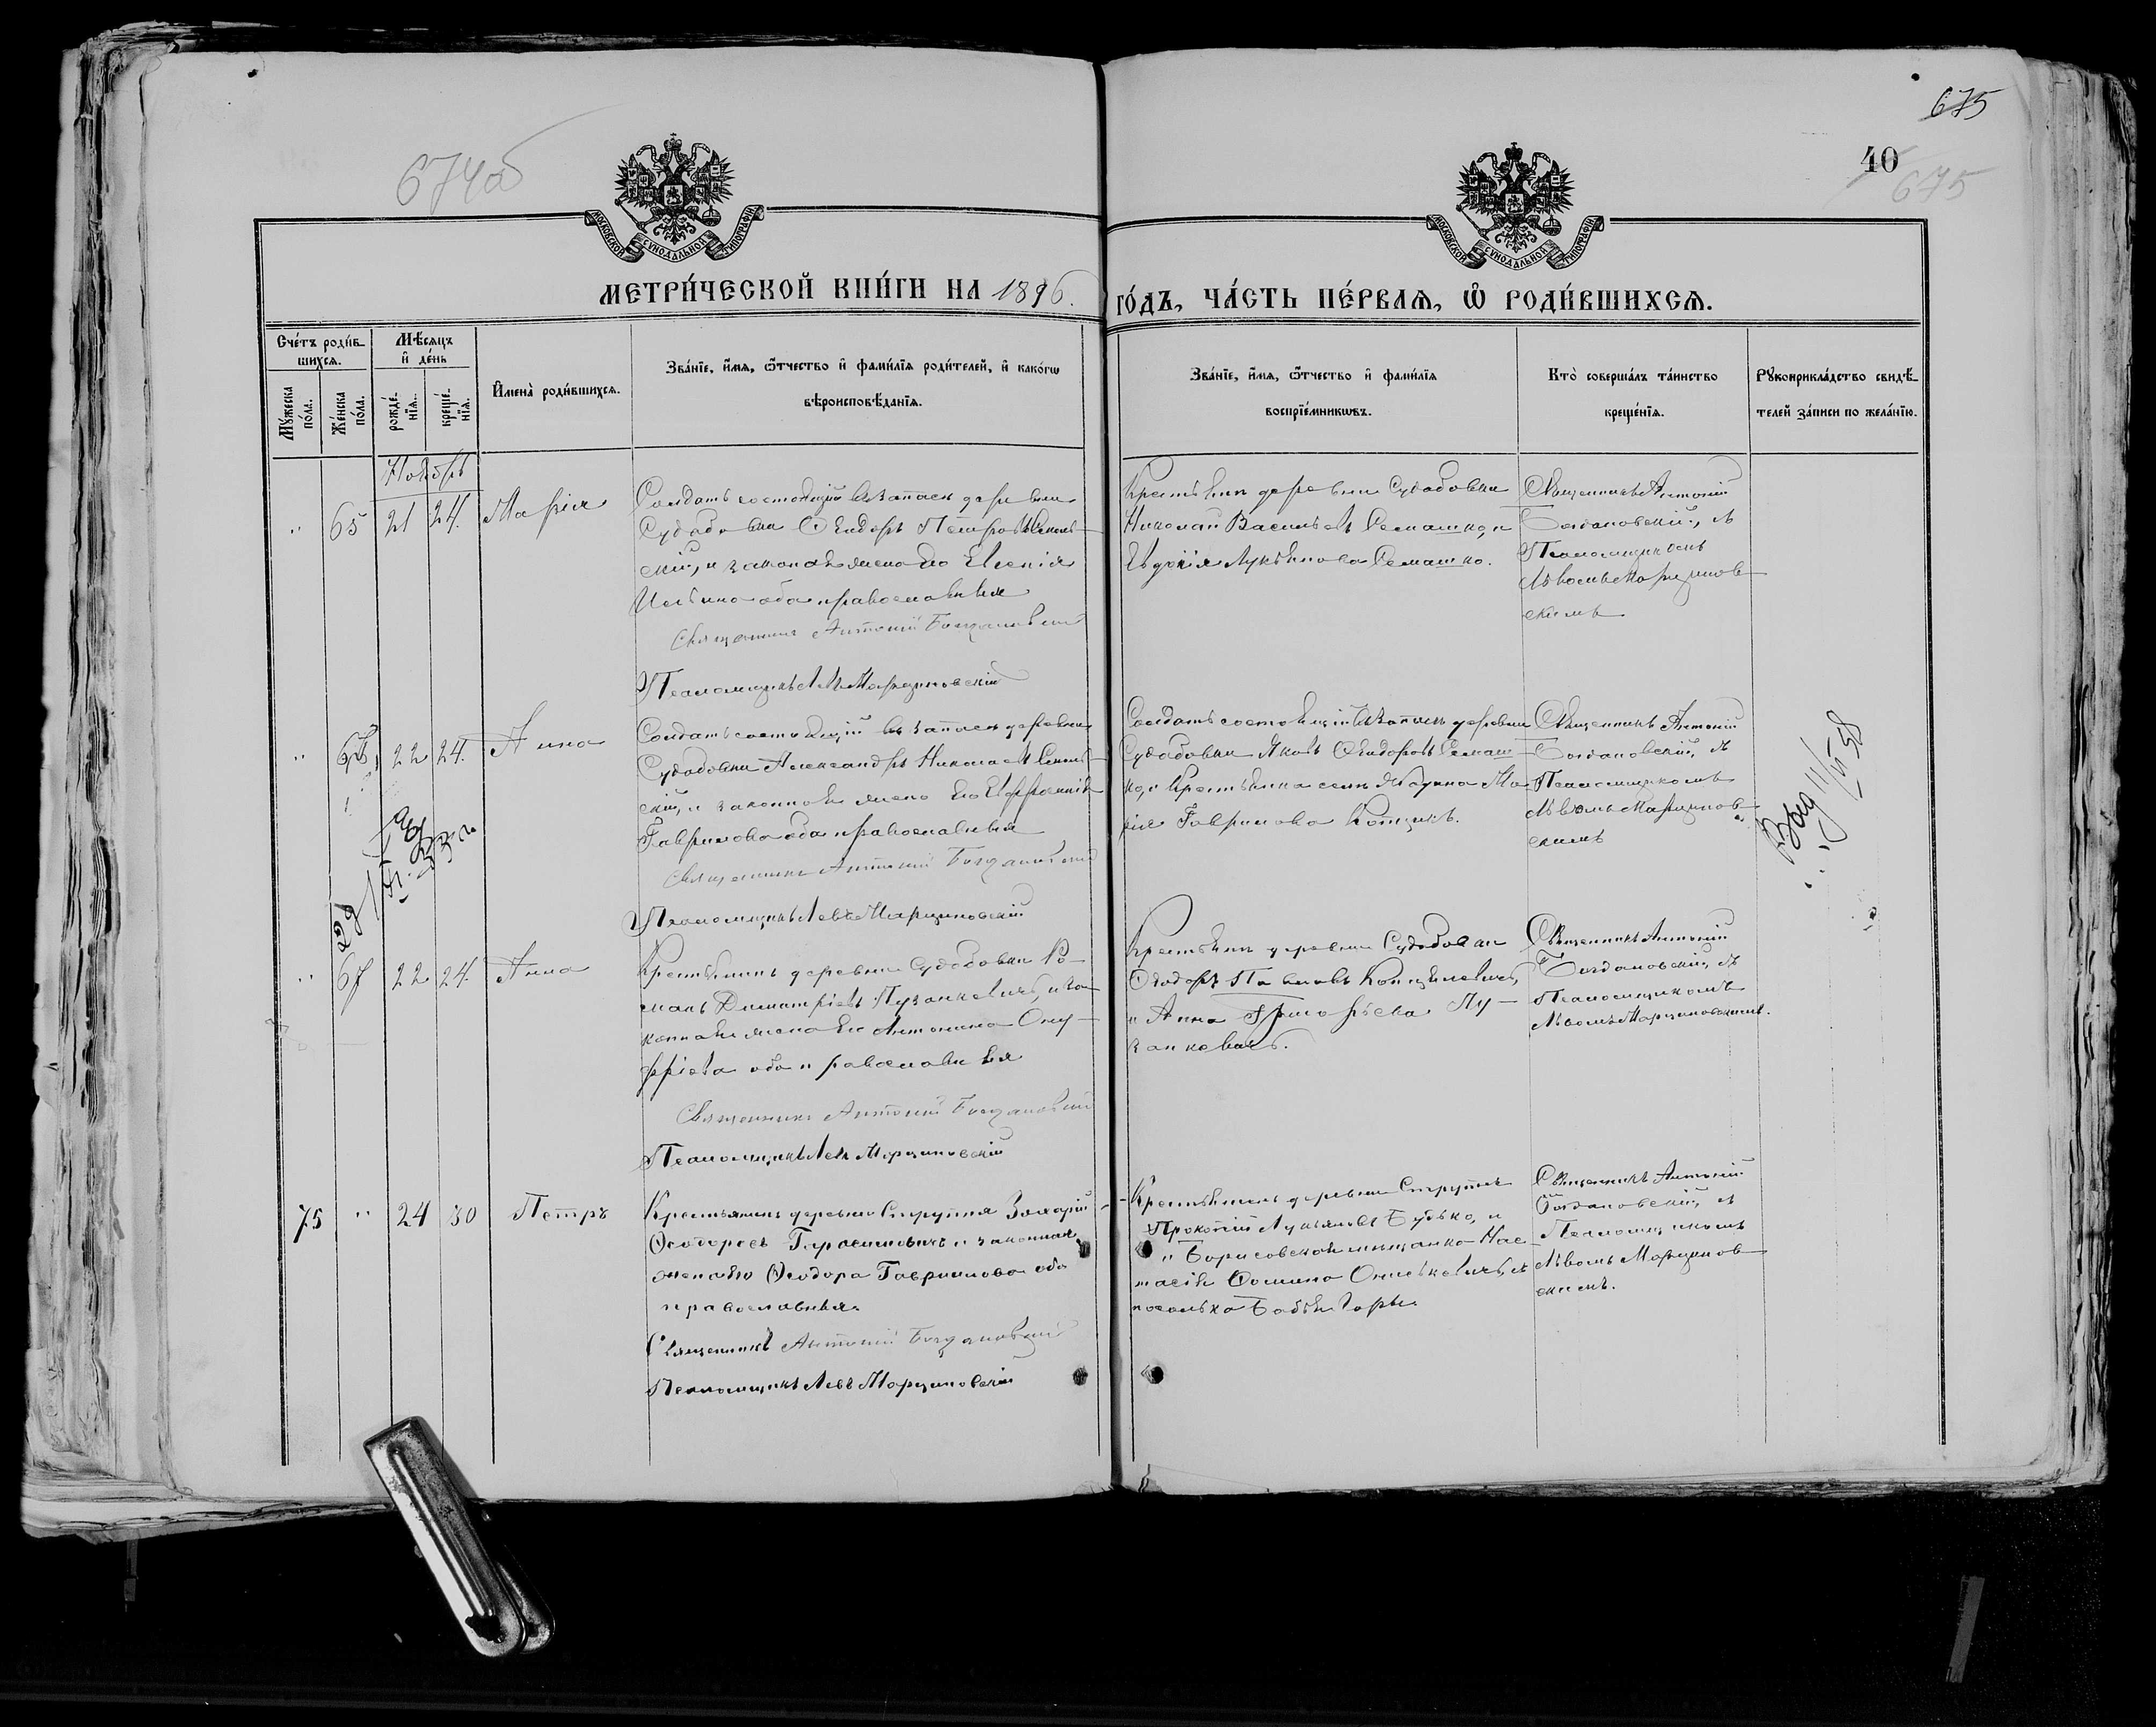 675
674об
40
675
МОСКОВСКОЙ СѴНОДАЛЬНОЙ ТИПОГРАФІИ
МОСКОВСКОЙ СѴНОДАЛЬНОЙ ТИПОГРАФІИ
МЕТРИ́ЧЕСКОЙ КНИ́ГИ НА 1896.
ГО́ДЪ, ЧА́СТЬ ПЕ́РВАЯ, Ѡ РОДИ́ВШИХСЯ.
Сче́тъ роди́в-
шихся.
Мѣ́сяцъ
и҆ де́нь
Мꙋ́жеска
по́ла.
Же́нска
по́ла.
рожде́-
нїя.
креще́-
нїя.
И҆мена̀ роди́вшихся.
Зва́нїе, и҆́мя, ѻ҆́тчество и҆ фами́лїя роди́телей, и҆ како́гѡ
вѣроисповѣ́данїя.
Зва́нїе, и҆́мя, ѻ҆́тчество и҆ фами́лїя
воспрїе́мникѡвъ.
Кто̀ соверша́лъ та́инство
креще́нїя.
Рꙋкоприкла́дство свидѣ́-
телей за́писи по жела́нїю.
Ноябрь
" 65 21 24. Марія
Солдатъ состоящій въ запасѣ деревни
Судобовки Ѳеодоръ Петровъ
скій, и законная жена его Евгенія
Ильина оба православныя
Священникъ Антоній Богдановскій
Псаломщикъ Левъ Марциновскій
Крестьянинъ деревни Судобовки
Николай Васильевъ Семашко, и
Евдокія Лукьянова Семашко.
Священникъ Антоній
Богдановскій, съ
Псаломщикомъ
Львомъ Марцинов-
скимъ
" 66 22 24. Анна
Солдатъ состоящій въ запасѣ деревни
Судобовки Александръ Николаевъ
скій, и законная жена его
Гаврилова оба православныя
Священникъ Антоній Богдановскій
Псаломщикъ Левъ Марциновскій
Солдатъ состоящій въ запасѣ деревни
Судобовки Яковъ Ѳеодоровъ Семаш-
ко, и Крестьянка села Жодина Ма-
рія Гаврилова
Священникъ Антоній
Богдановскій, съ
Псаломщикомъ
Львомъ Марцинов-
скимъ
" 67 22 24. Анна
Крестьянинъ деревни Судобовки Ро-
манъ Димитріевъ Пузанкевичъ, и за-
конная жена его Антонина Ону-
фріева оба православныя
Священникъ Антоній Богдановскій
Псаломщикъ Левъ Марциновскій
Крестьянинъ деревни Судобовки
Ѳеодоръ Павловъ
и Анна Григорьева Пу-
занкевичъ.
Священникъ Антоній
Богдановскій, съ
Псаломщикомъ
Львомъ Марциновскимъ.
75 " 24 30 Петръ
Крестьянинъ деревни Струпня Захарій
Ѳеодоровъ Герасимовичъ и законная
жена его Ѳеодора Гаврилова оба
православныя.
Священникъ Антоній Богдановскій
Псаломщикъ Левъ Марциновскій
Крестьянинъ деревни Струпня
Прокопій Лукьяновъ Будько, и
и Борисовская мѣщанка Нас-
тасія Ѳомина
поселка Бабья Гора.
Священникъ Антоній
Богдановскій, съ
Псаломщикомъ
Львомъ Марцинов-
скимъ.